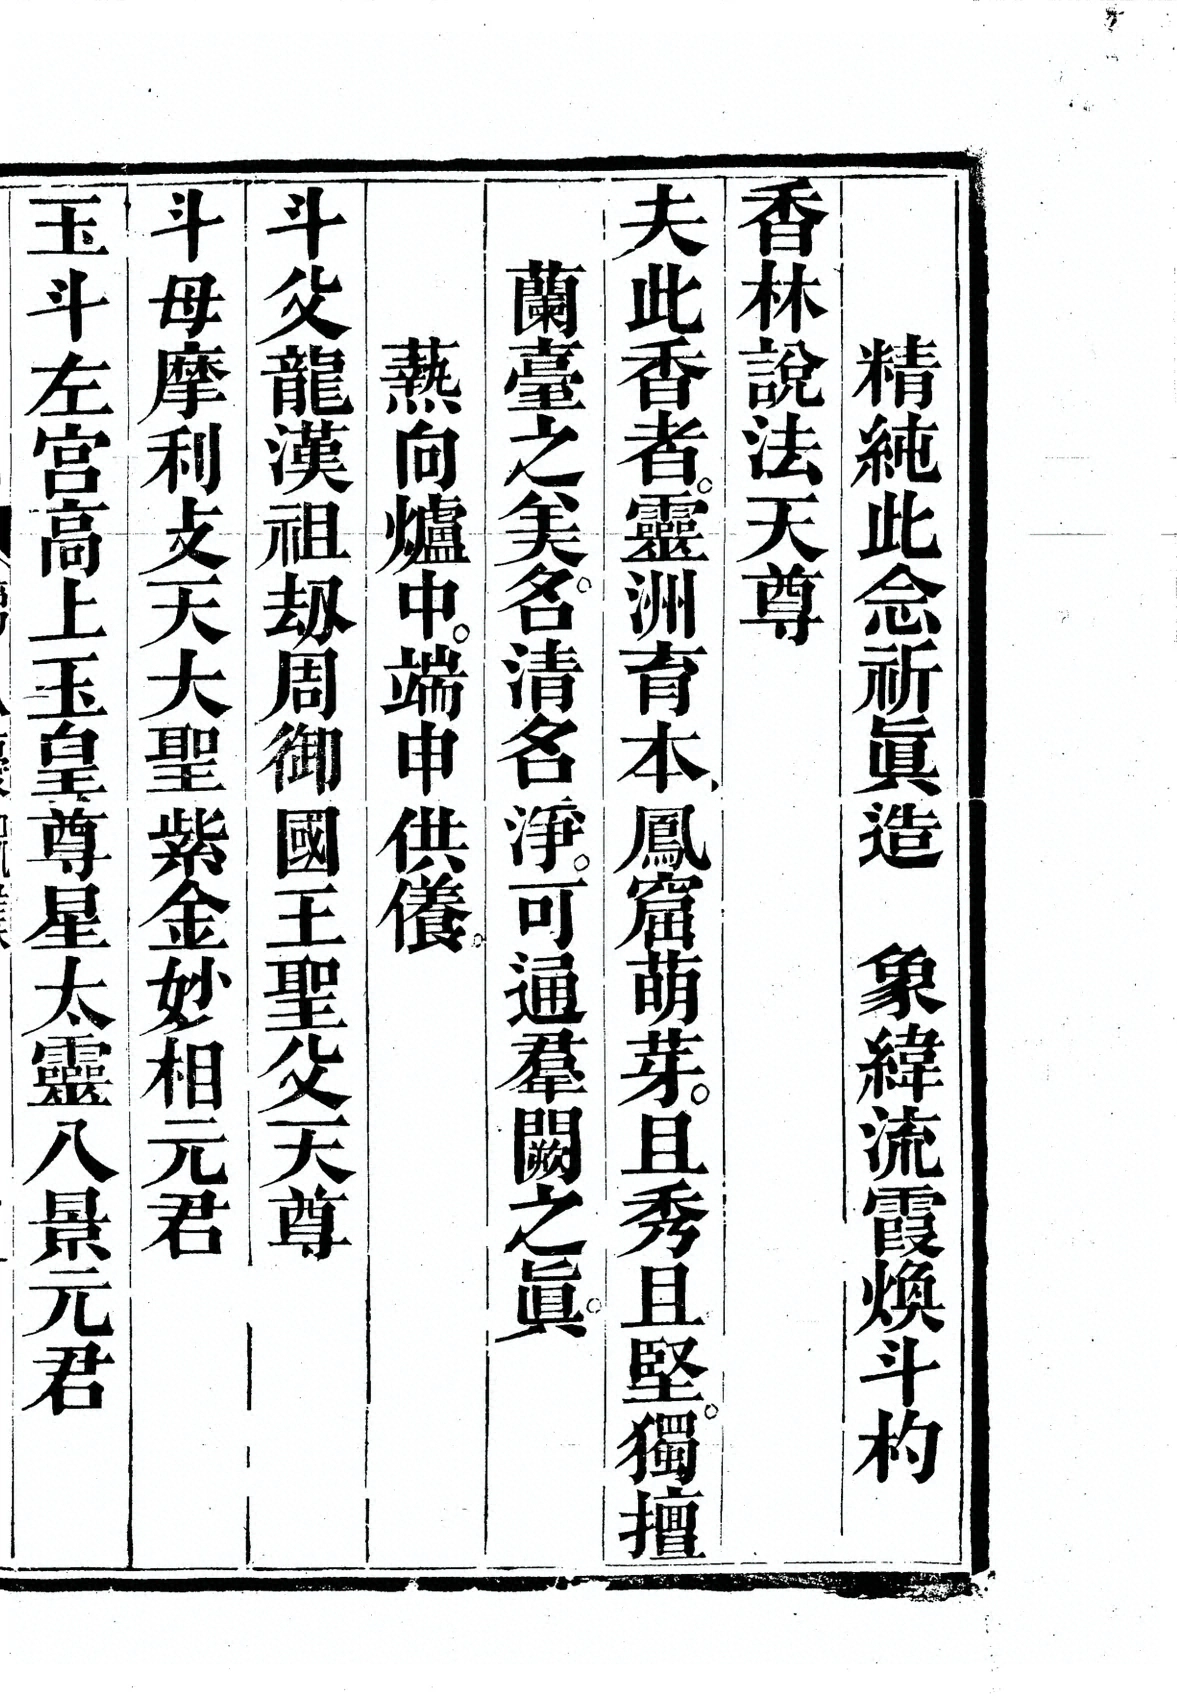 精純此念祈眞造　象緯流霞煥斗杓
香林說法天尊
夫此香者。靈洲育本、鳳窟萌芽。且秀且堅。獨擅
蘭臺之美。名清名淨。可通羣闕之眞。
爇向爐中。端申供儀。
斗父龍漢祖劫周御國王聖父天尊
斗母摩利攴天大聖紫金妙相元君
玉斗左宮高上玉皇尊星太靈八景元君